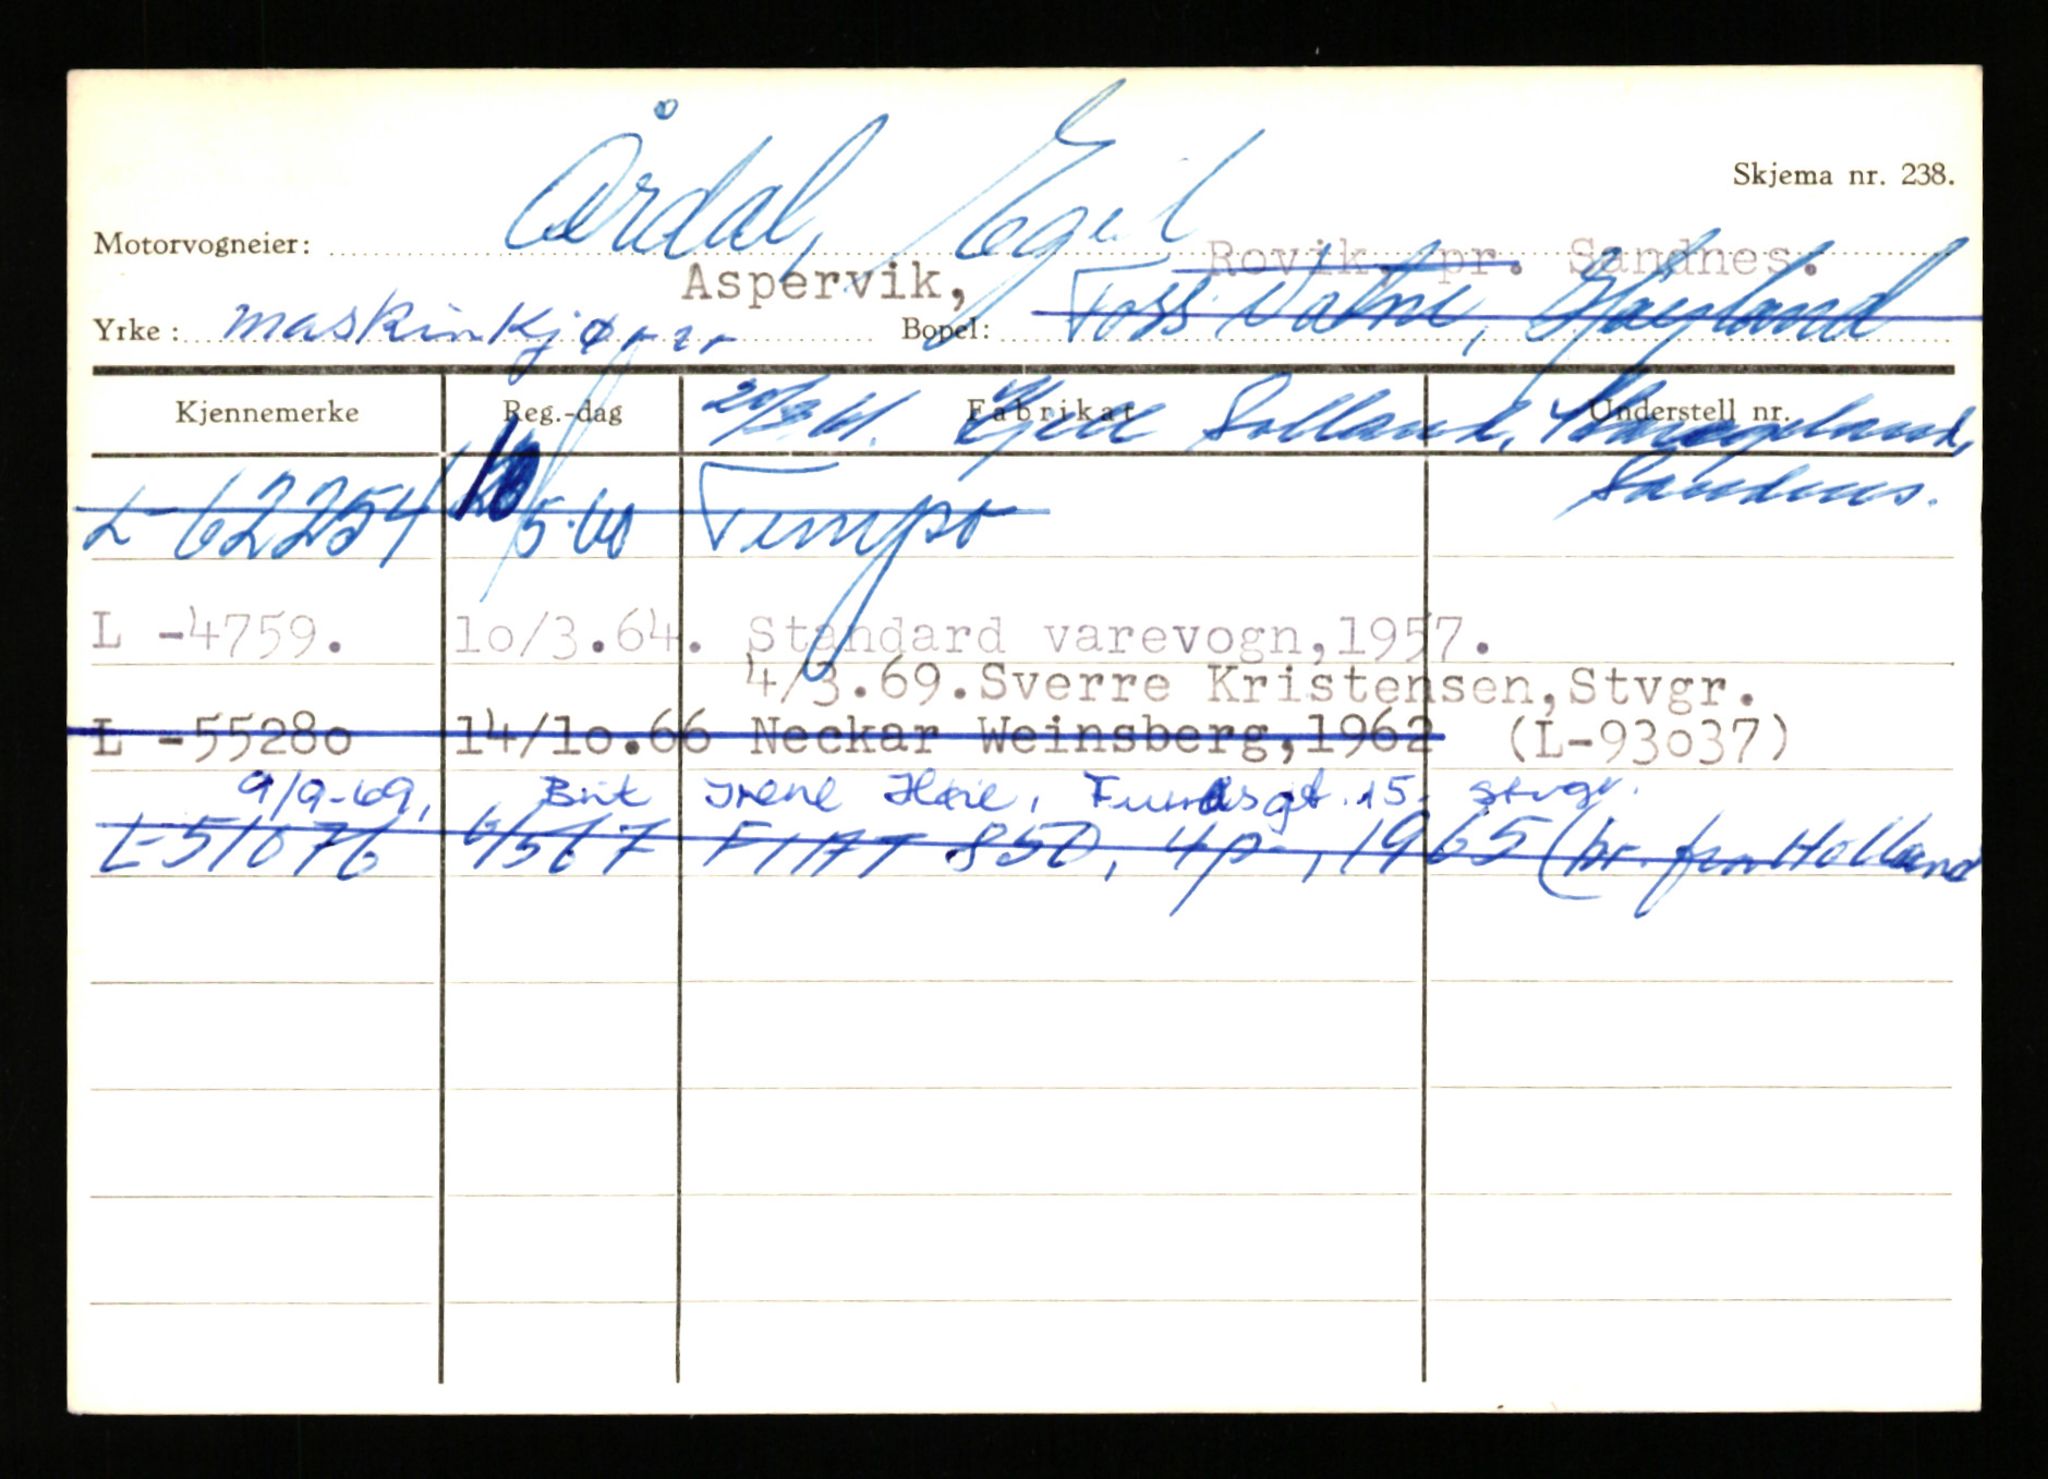 Skjema nr. 238.
Motorvogneier: Årdal, Egil
Rovik, pr. Sandnes.
Aspervik,
Yrke: maskinkjører Bopel: Foss Vatne, Høyland
Kjennemerke Reg.-dag Fabrikat Understell nr.
Kjell Solland,
Sandnes.
L-62254 10/5.60 Tempo
L -4759. 1o/3.64. Standard varevogn,1957.
4/3.69.Sverre Kristensen,Stvgr.
L -5528o 14/1o.66 Neckar Weinsberg,1962 (L-93o37)
9/9-69, Brit Irene Høie, 15, Stvgr.
L-51076 6/567 FIAT 850, 4p-, 1965 (br. fra Holland